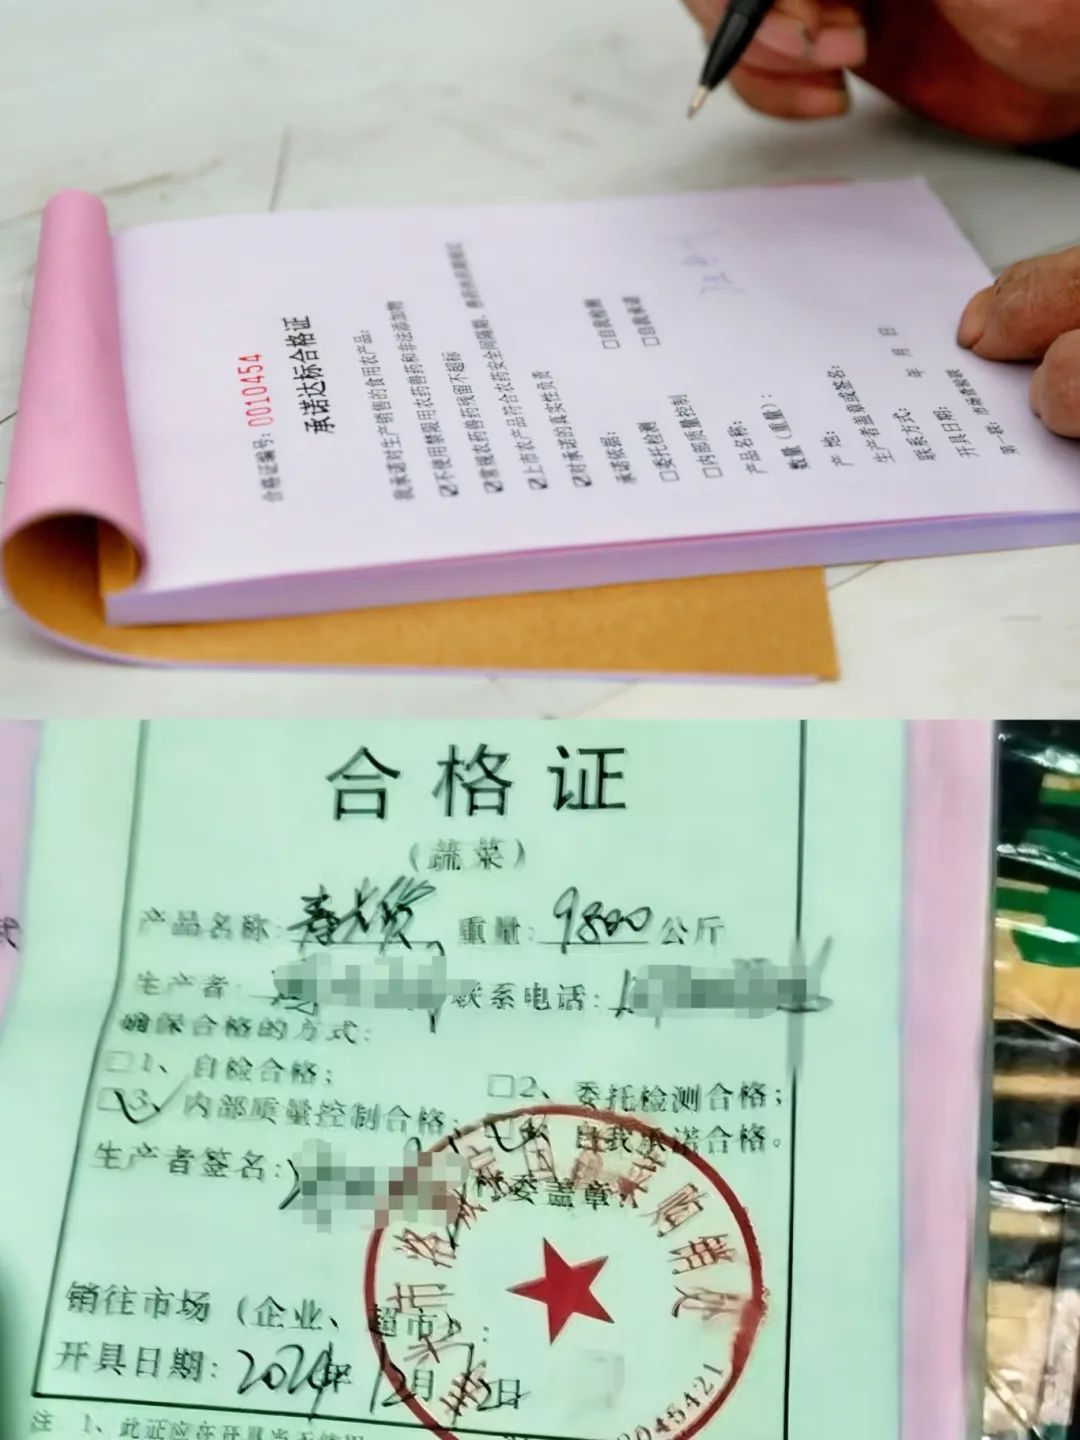 合格证编号: 0010454
承诺达标合格证
我承诺对生产销售的食用农产品:
☑不使用禁限用农药兽药和非法添加物
☑常规农药兽药残留不超标
☑上市农产品符合农药安全间隔期、
☑对承诺的真实性负责
承诺依据:
□委托检测 □自我检测
□内部质量控制 □自我承诺
产品名称:
数量(重量):
产 地:
生产者盖章或签名:
联系方式:
开具日期: 年 月 日
第一联:
合格证
(蔬菜)
产品名称: 重量: 9800公斤
生产者: 联系电话:
确保合格的方式:
□1、自检合格; □2、委托检测合格;
□3、内部质量控制合格; 自我承诺合格。
生产者签名: 村委盖章:
销往市场(企业、超市):
开具日期: 年12月 日
注 1、此证应在